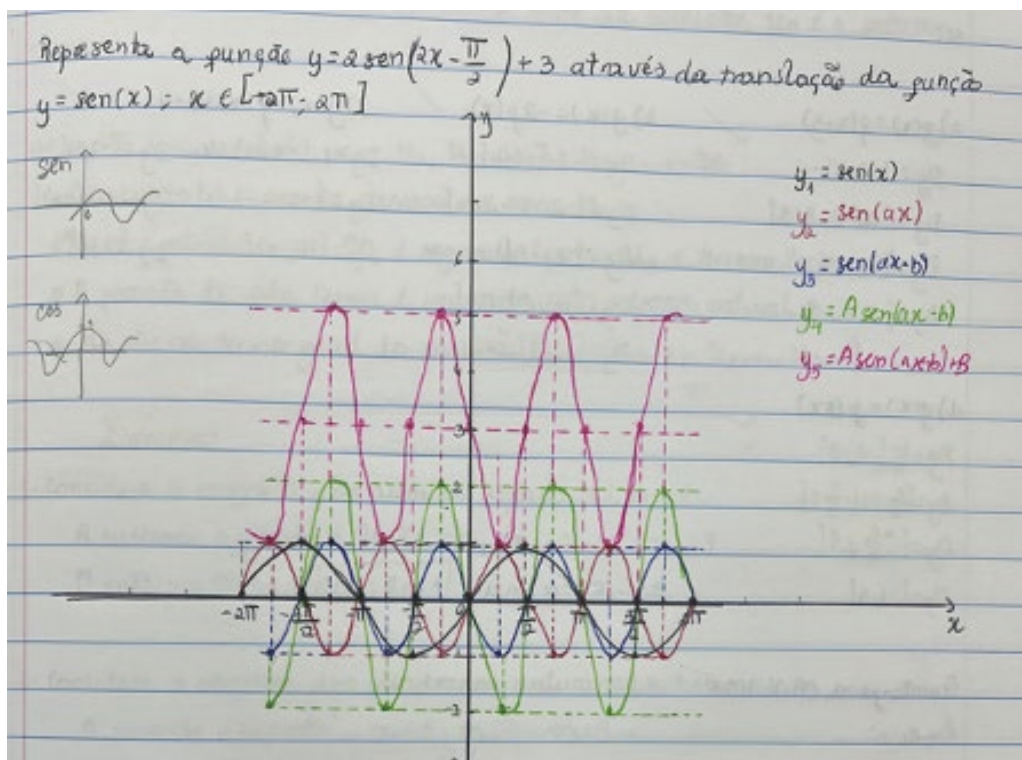 Representa a função y=2sen(2x-π/2)+3 através da translação da função
y=sen(x); x ∈ [-2π; 2π]
sen
cos
y
y₁=sen(x)
y₂=sen(ax)
y₃=sen(ax+b)
y₄=Asen(ax-b)
y₅=Asen(ax+b)+B
6
5
4
3
2
-2π -3π/2 -π -π/2 0 π/2 π 3π/2 2π
x
-2